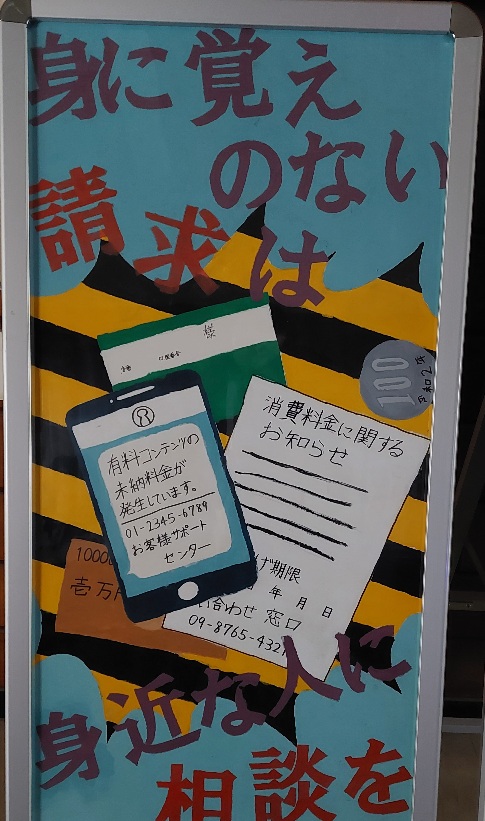 身に覚え
のない
請求は
様
100
令和2年
Ⓡ
有料コンテンツの
未納料金が
発生しています。
01-2345-6789
お客様サポート
センター
消費料金に関する
お知らせ
期限
年 月 日
合わせ 窓口
09-8765-432
1000
壱万
身近な人に
相談を